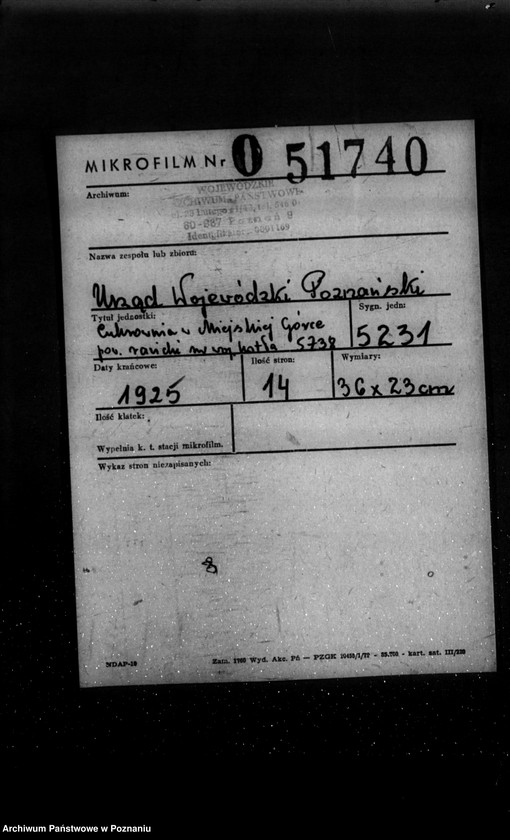 MIKROFILM Nr 0 51740
Archiwum:
WOJEWÓDZKIE
ARCHIWUM PAŃSTWOWE
Nazwa zespołu lub zbioru:
Urząd Wojewódzki Poznański
Tytuł jednostki:
Sygn. jedn:
Cukrownia w Miejskiej Górce
pow. rawicki nr kotła 5738
5231
Daty krańcowe:
Ilość stron:
Wymiary:
1925
14
36 x 23 cm
Ilość klatek:
Wypełnia k. t. stacji mikrofilm.
Wykaz stron niezapisanych:
NDAP-19
Zam. Wyd. Akc. Pń — PZGK
kart. sat.
Archiwum Państwowe w Poznaniu